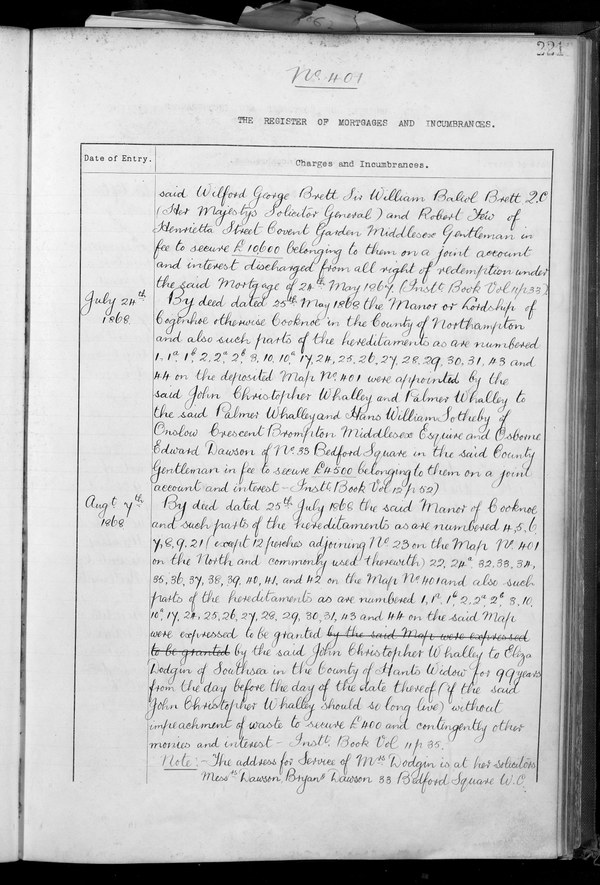 221
No. 401
THE REGISTER OF MORTGAGES AND INCUMBRANCES.
Date of Entry.
Charges and Incumbrances.
said Wilford George Brett Sir William Baliol Brett Q.C
(Her Majestys Solicitor General) and Robert Few of
Henrietta Street Covent Garden Middlesex Gentleman in
fee to secure £10600 belonging to them on a joint account
and interest discharged from all right of redemption under
the said Mortgage of 24th May 1867. (Instts Book Vol 11 p 33)
July 24th 1868
By deed dated 25th May 1868 the Manor or Lordship of
Cogenhoe otherwise Cooknoe in the County of Northampton
and also such parts of the hereditaments as are numbered
1, 1a, 1b, 2, 2a, 2b, 3, 10, 10a, 17, 24, 25, 26, 27, 28, 29, 30, 31, 43 and
44 on the deposited Map No. 401 were appointed by the
said John Christopher Whalley and Palmer Whalley to
the said Palmer Whalley and Hans William Sotheby of
Onslow Crescent Brompton Middlesex Esquire and Osborne
Edward Dawson of No. 33 Bedford Square in the said County
Gentleman in fee to secure £4500 belonging to them on a joint
account and interest - Instts Book Vol 12 p 52)
Augt 7th 1868
By deed dated 25th July 1868 the said Manor of Cooknoe
and such parts of the hereditaments as are numbered 4, 5, 6
7, 8, 9, 21 (except 12 perches adjoining No. 23 on the Map No. 401
on the North and commonly used therewith) 22, 24a, 32, 33, 34,
35, 36, 37, 38, 39, 40, 41, and 42 on the Map No 401 and also such
parts of the hereditaments as are numbered 1, 1a, 1b, 2, 2a, 2b, 3, 10,
10a, 17, 24, 25, 26, 27, 28, 29, 30, 31, 43 and 44 on the said Map
were expressed to be granted by the said Map were expressed
to be granted by the said John Christopher Whalley to Eliza
Dodgin of Southsea in the County of Hants Widow for 99 years
from the day before the day of the date thereof (if the said
John Christopher Whalley should so long live) without
impeachment of waste to secure £400 and contingently other
monies and interest - Instts Book Vol 11 p 35.
Note:- The address for Service of Mrs Dodgin is at her solicitors
Messrs Dawson, Bryan & Dawson 33 Bedford Square W.C.